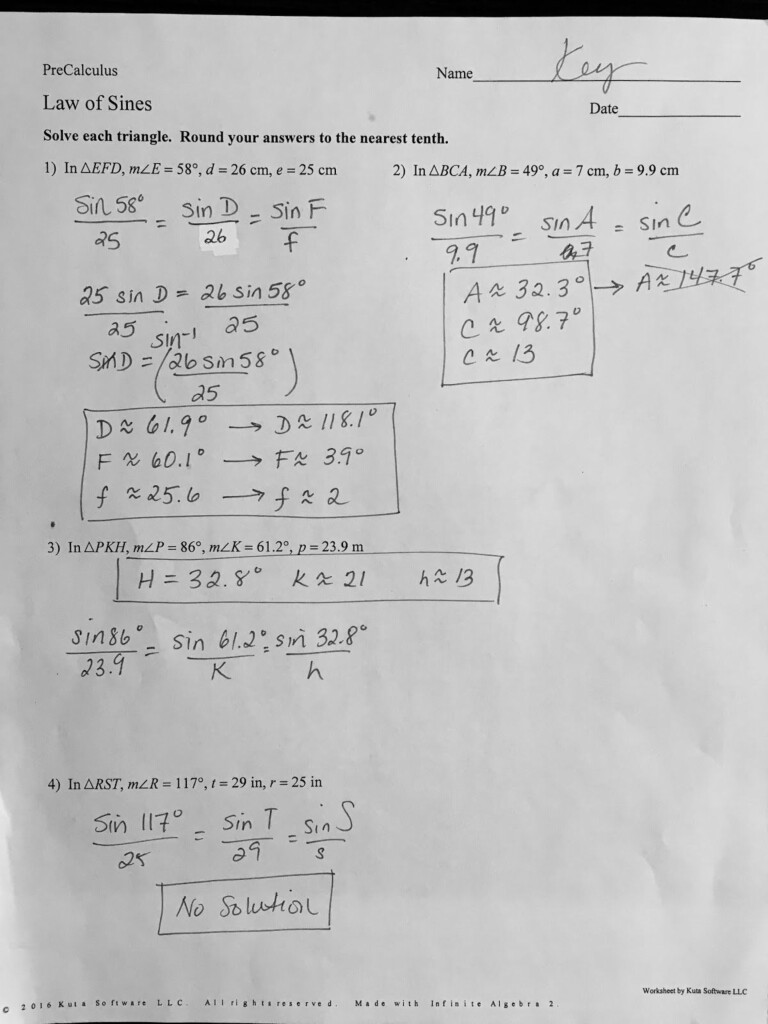 PreCalculus
Name Key
Law of Sines
Date
Solve each triangle. Round your answers to the nearest tenth.
1) In △EFD, m∠E = 58°, d = 26 cm, e = 25 cm
sin 58°/25 = sin D/26 = sin F/f
25 sin D/25 = 26 sin 58°/25
sin⁻¹
sin D = (26 sin 58°/25)
D ≈ 61.9° → D ≈ 118.1°
F ≈ 60.1° → F ≈ 3.9°
f ≈ 25.6 → f ≈ 2
2) In △BCA, m∠B = 49°, a = 7 cm, b = 9.9 cm
sin 49°/9.9 = sin A/7 = sin C/c
A ≈ 32.3° → A ≈ 147.7°
C ≈ 98.7°
c ≈ 13
3) In △PKH, m∠P = 86°, m∠K = 61.2°, p = 23.9 m
H = 32.8° k ≈ 21 h ≈ 13
sin 86°/23.9 = sin 61.2°/K = sin 32.8°/h
4) In △RST, m∠R = 117°, t = 29 in, r = 25 in
sin 117°/25 = sin T/29 = sin S/s
No Solution
Worksheet by Kuta Software LLC
© 2016 Kuta Software LLC. All rights reserved. Made with Infinite Algebra 2.